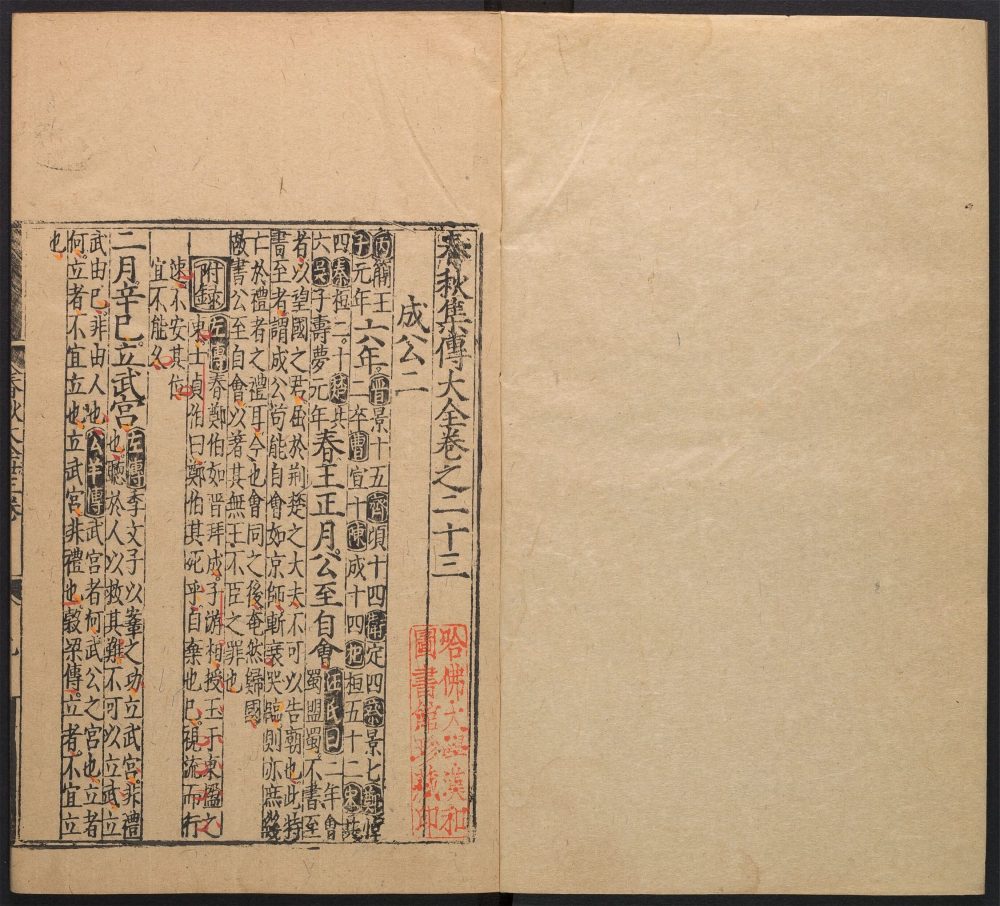 春秋集傳大全卷之二十三
哈佛大學漢和
圖書館珍藏印
成公二
丙簡王
子元年
六年
晉景十五齊頃十四衛定四蔡景七鄭悼
二卒曹宣十陳成十四杞桓五十二宋共
四秦桓二十楚共
六吳子壽夢元年
春王正月公至自會
汪氏曰二年會
蜀盟蜀不書至
者以望國之君屈於荆楚之大夫不可以告廟也此特
書至者謂成公苟能自會如京師斬衰哭臨則亦庶幾
亡於禮者之禮耳今也會同之後奄然歸國
故書公至自會以著其無王不臣之罪也
附錄
左傳春鄭伯如晉拜成子游相授玉于東楹之
東士貞伯曰鄭伯其死乎自棄也已視流而行
速不安其位
宜不能久
二月辛巳立武宮
左傳季文子以鞌之功立武宮非禮
也聽於人以救其難不可以立武立
武由己非由人也公羊傳武宮者何武公之宮也立者
何立者不宜立也立武宮非禮也穀梁傳立者不宜立
也